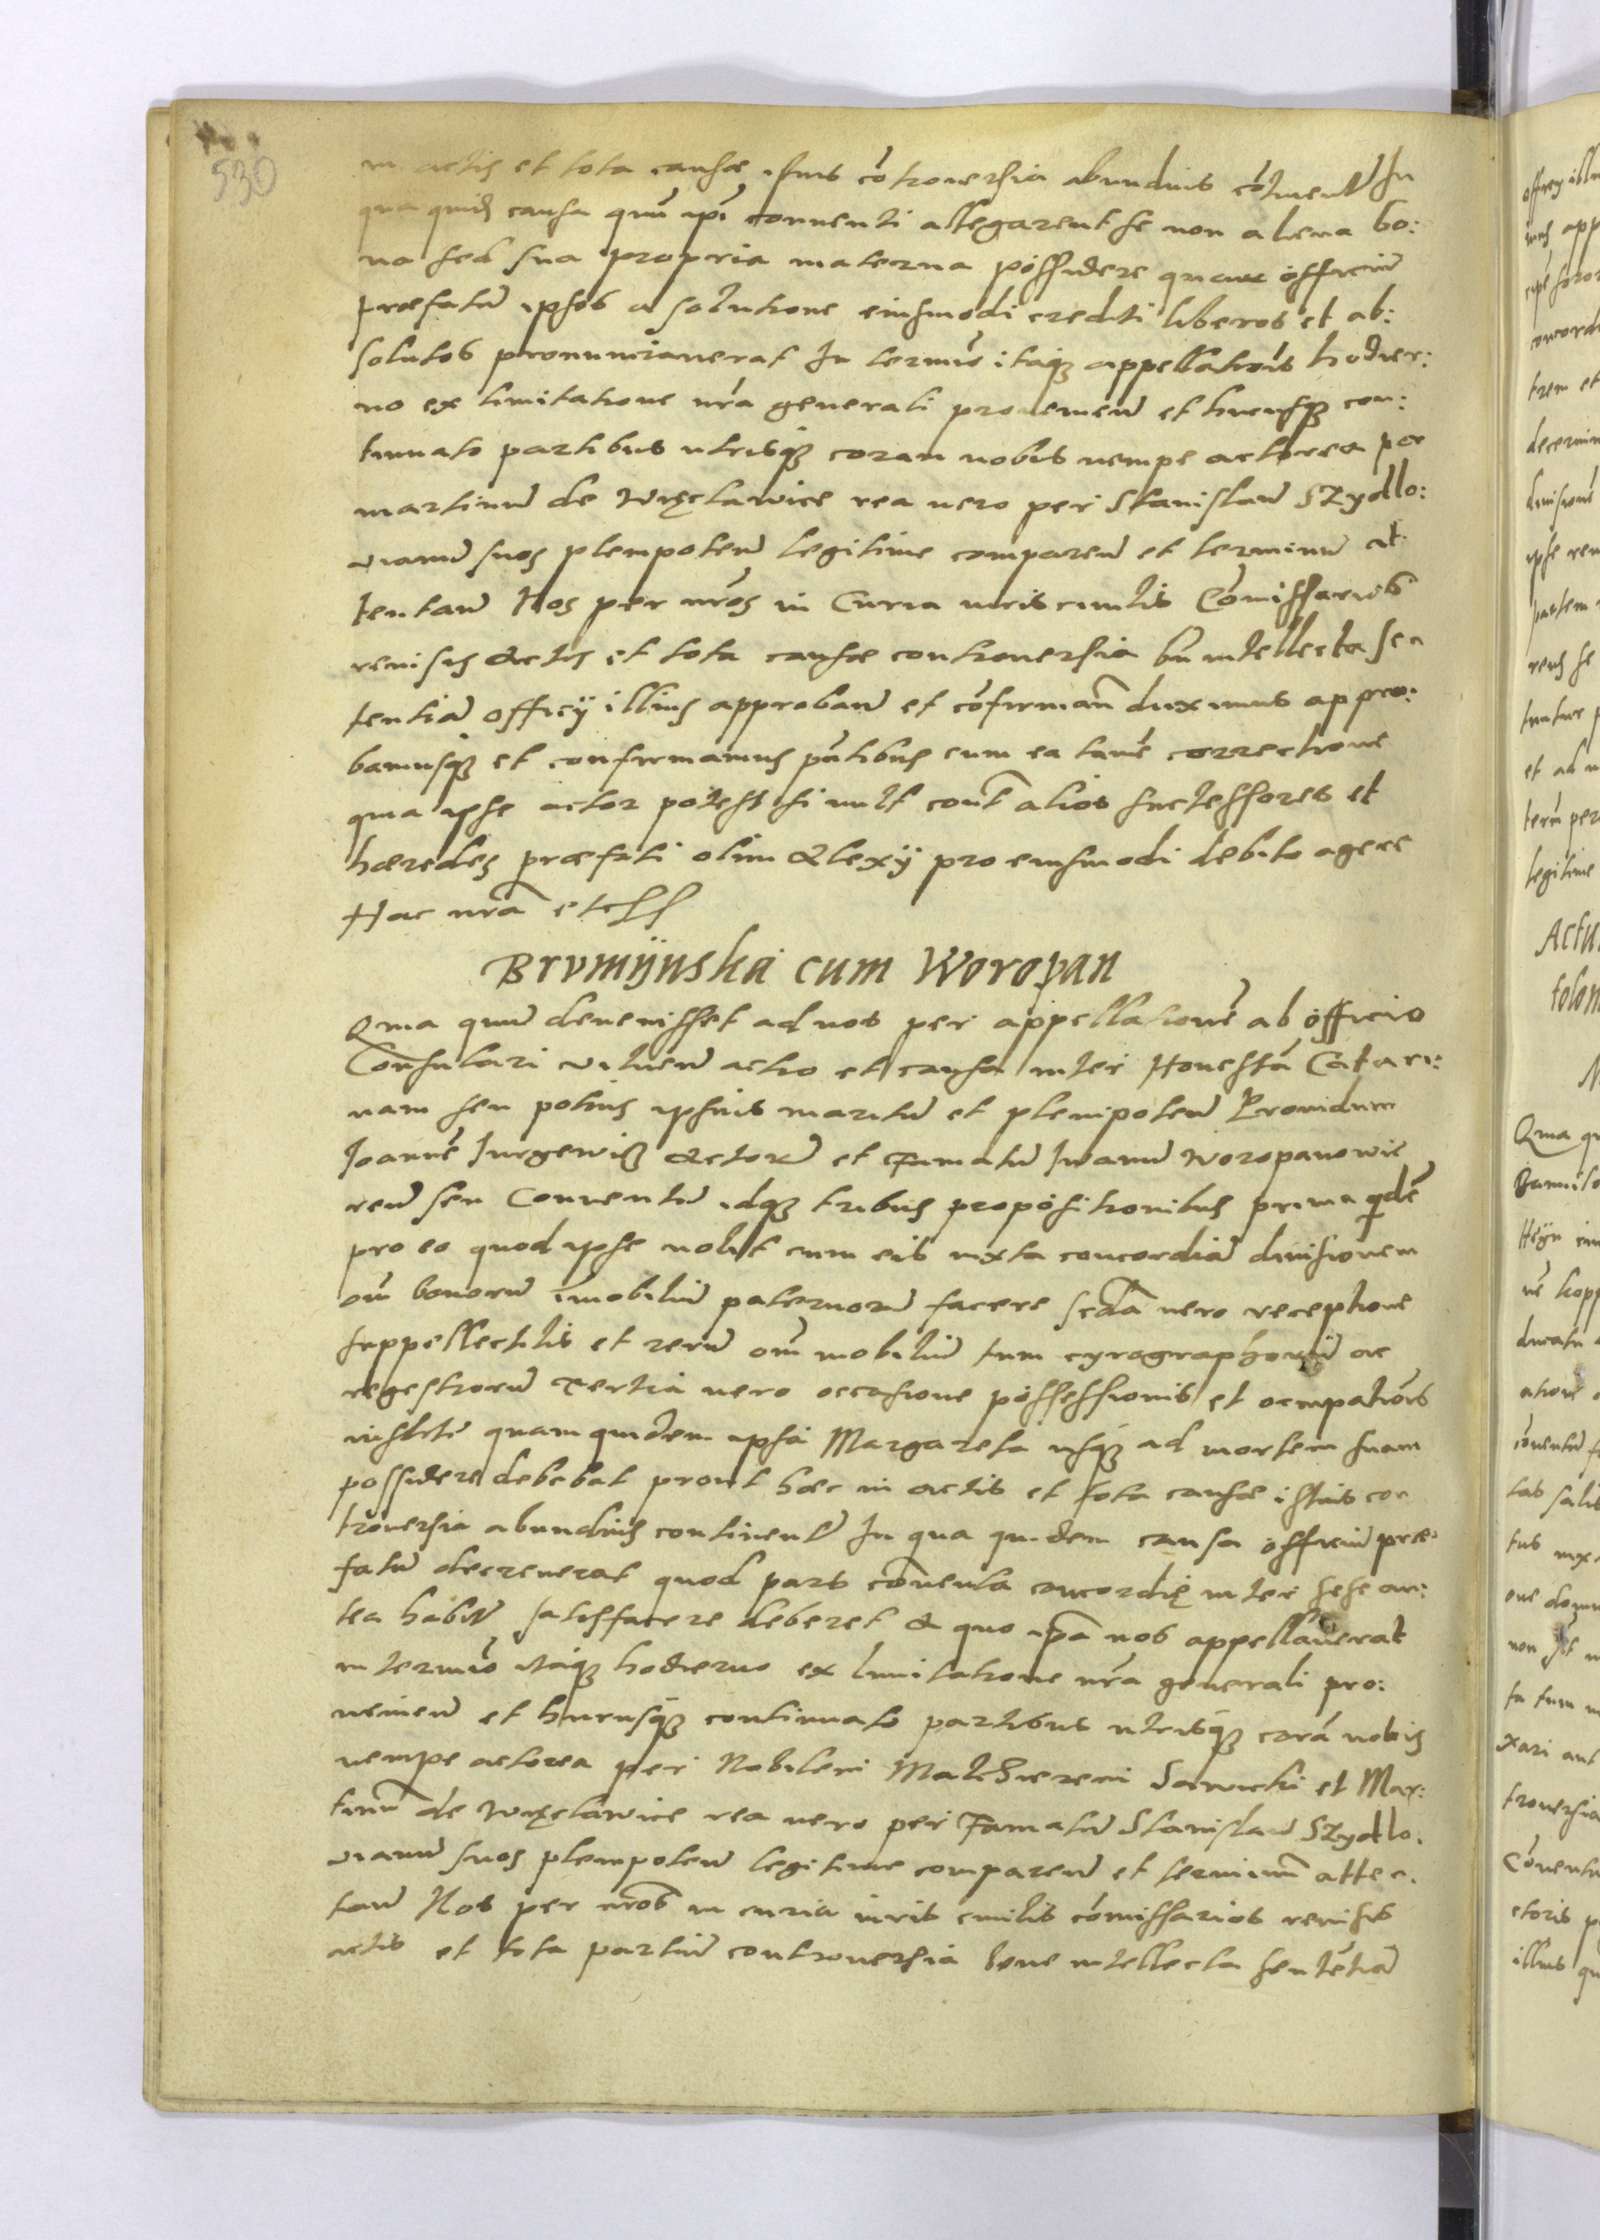 530
in actis et tota causae istius cōtroversia abundius cōtinent̃ In
qua quid̃ causa quũ ipĩ conventi allegarent se non aliena bo:
na sed sua propria materna possidere quare officiũ
praefatũ ipsos a solutione eiusmodi crediti liberos et ab:
solutos pronunciaverat In termĩo itaq3 appellatiõis hodier:
no ex limitatione nrã generali provenieñ et hucusq3 con:
tinuato partibus utrisq3 coram nobis nempe actorea per
martinũ de Więclawice rea vero per Stanislaũ Szydlo:
vianũ suos plenipoteñ legitime compareñ et terminũ at:
tentañ Nos per nrõs in Curia iuris civilis Cõmissarios
revisis actis et tota causae controversia bñ intellecta sen
tentiã officij illius approbañ et cõfirmañ duximus appro:
bamusq3 et confirmamus pñtibus cum ea tamẽ correctione
qua ipse actor potest si vult cont̃ alios successores et
haeredes praefati olim Alexij pro eiusmodi debito agere
Hac nrã etc
Brumijnska cum Woropan
Quia quum devenisset ad nos per appellationẽ ab officio
Consulari vilneñ actio et causa inter Honestã Catari:
nam seu potius ipsius maritũ et plenipoteñ Providum
Joannẽ Jurgewicz Actorẽ et Famatũ Iwanũ Woropanowic
reũ seu Conventũ idq3 tribus propositionibus prima qdẽ
pro eo quod ipse nolit cum eis iuxta concordiã divisionem
oĩm bonorũ ĩmobiliũ paternorũ facere scdã vero receptione
suppellectilis et rerũ oĩm mobiliũ tum cyrographorũ ac
regestrorũ Tertia vero occasione possessionis et ocupatiõis
quam quidem ipsa Margareta usq3 ad mortem suam
possidere debebat prout haec in actis et tota causae istius con
troversia abundius continent̃ In qua quidem causa officiũ prae:
fatũ decreverat quod pars cõventa concordię inter sese an:
tea habit̃ satisfacere deberet A quo ipã nos appellaverat
in termĩo itaq3 hodierno ex limitatione nrã generali pro:
venieñ et hucusq3 continuato partibus utrisq3 corã nobis
nempe actorea per Nobilem Mathiesem Sawicki et Mar:
tinũ de Więclawice rea vero per Famatũ Stanislaũ Szydlo:
vianũ suos plenipoteñ legitime compareñ et terminũ atten:
tañ Nos per nrõs in curia iuris civilis cõmissarios revisis
actis et tota partiũ controversia bene intellecta sentẽtiã